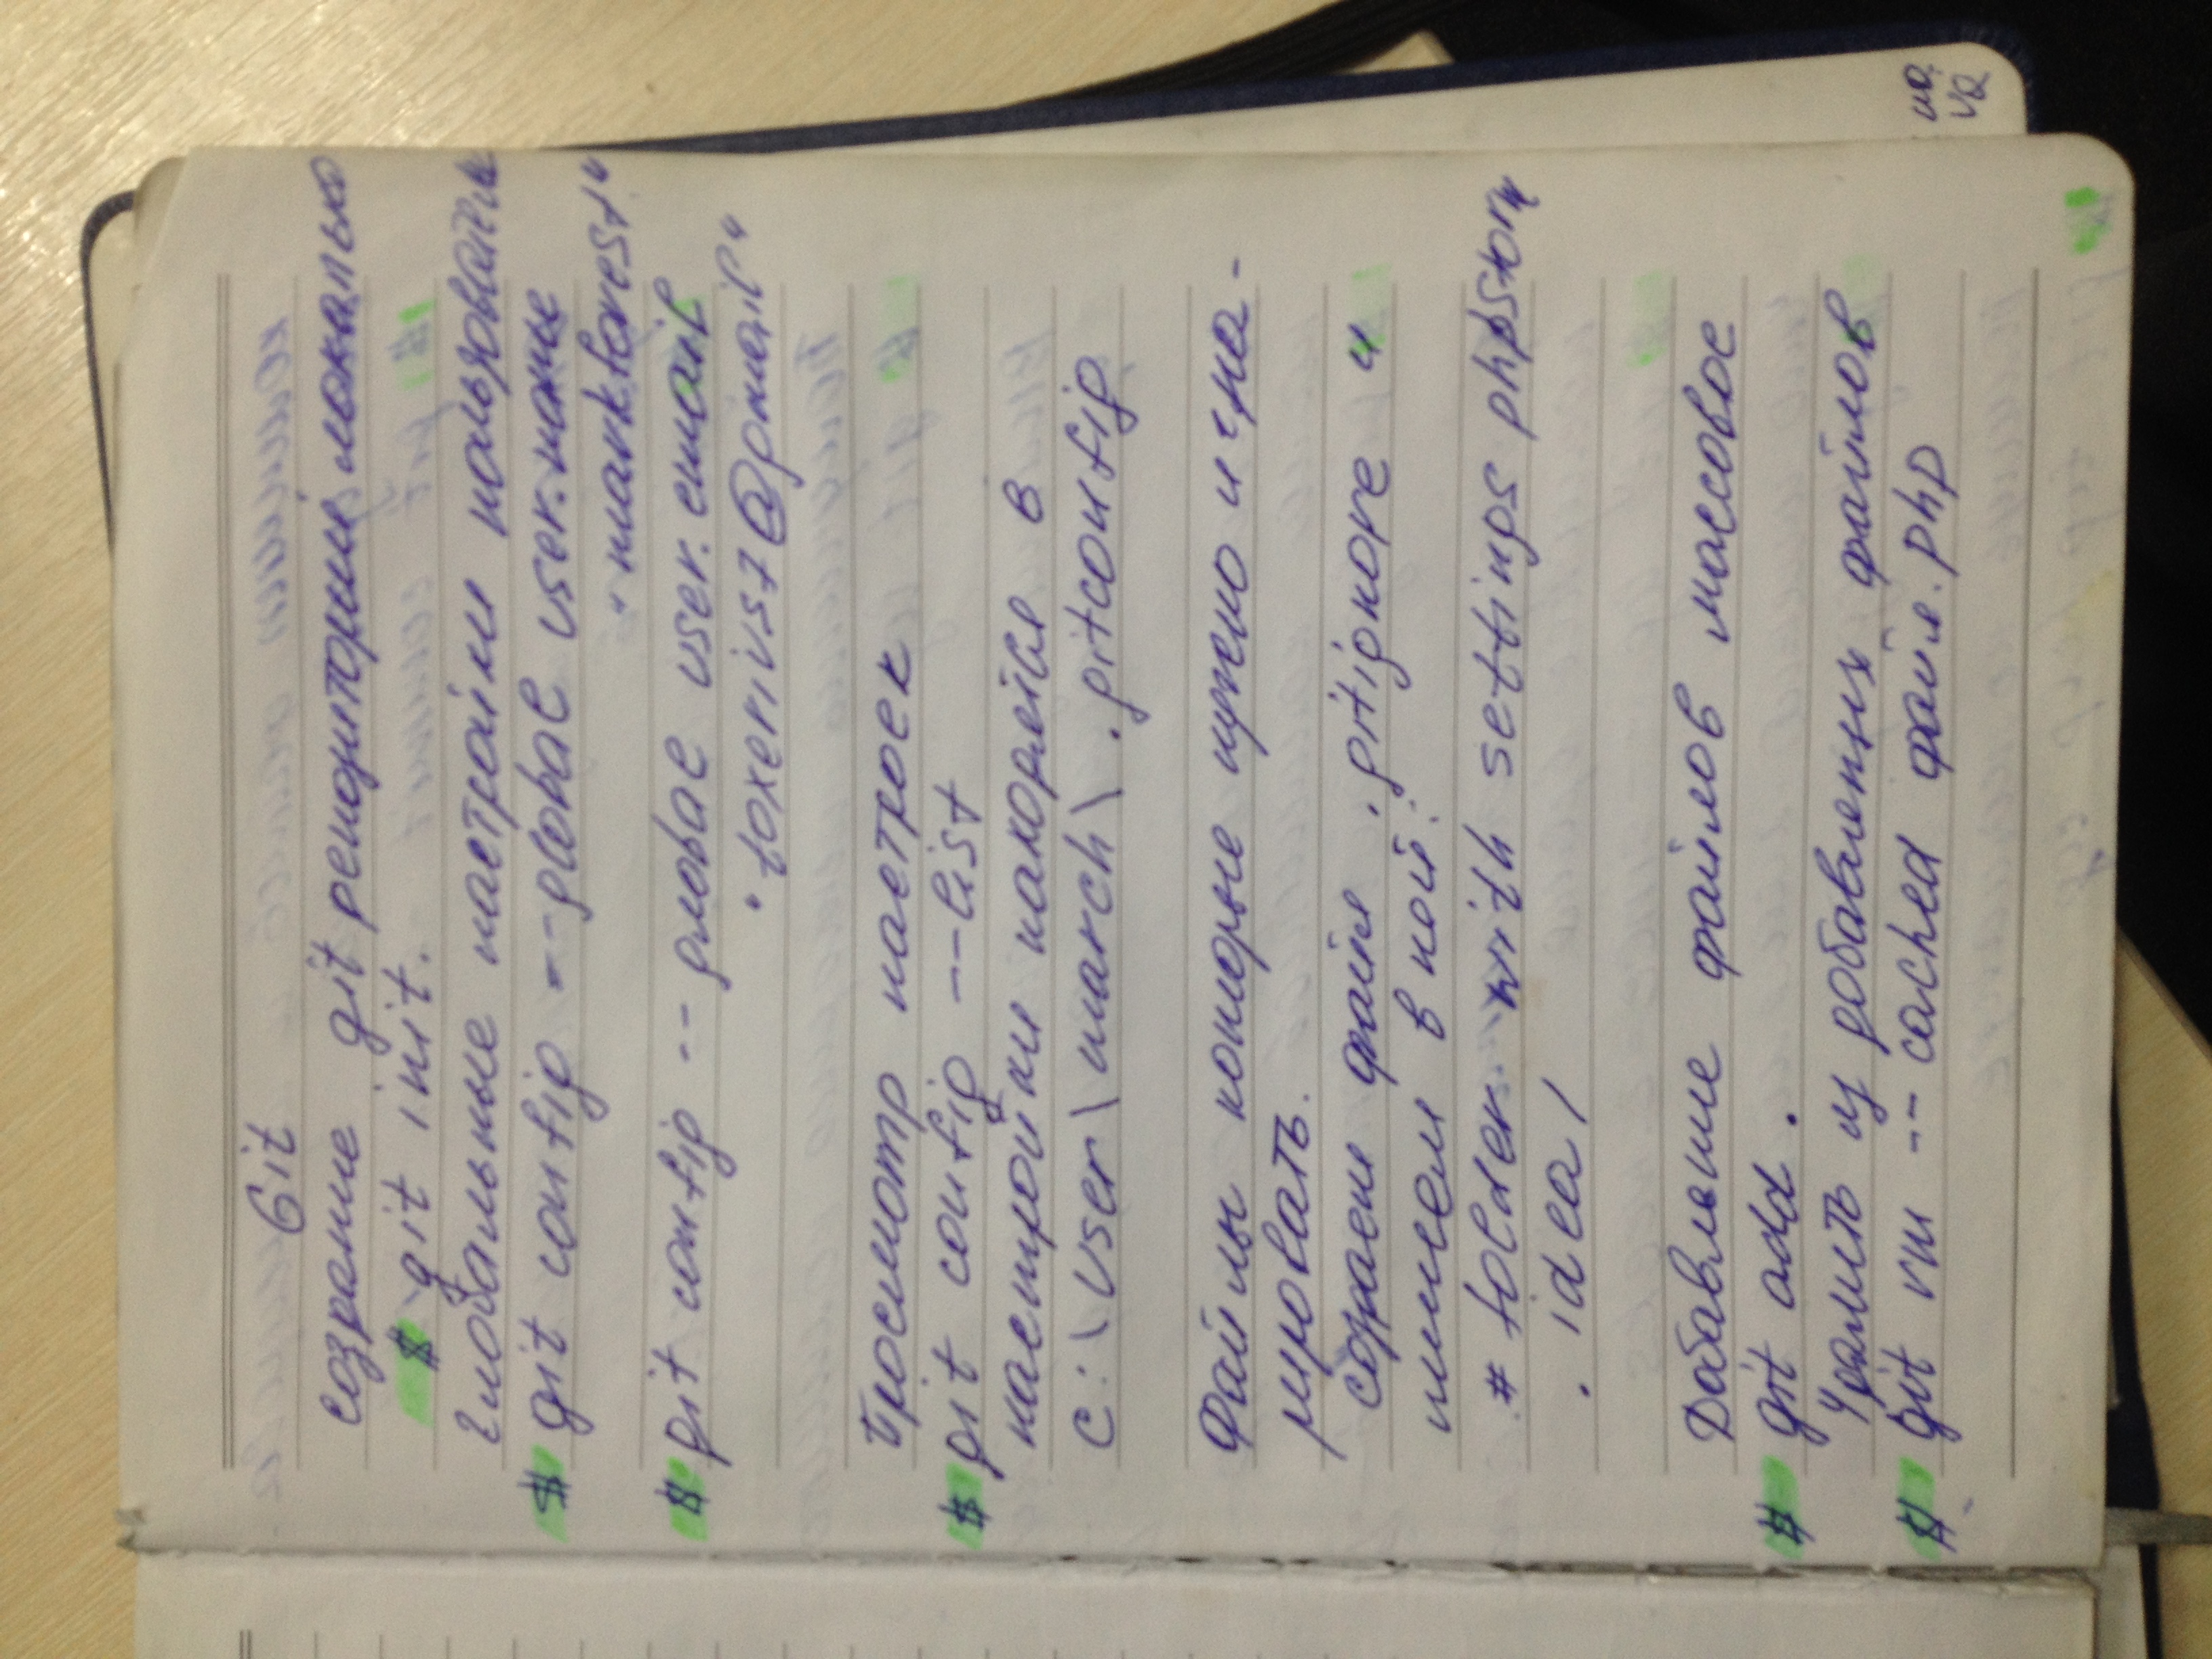 Git
создание git репозиторий локально
$ git init.
глобальные настройки пользователя
$ git config --global user.name
"markforest"
$ git config -- global user.email
"toxerius7@gmail"
Просмотр настроек
# git config --list
настройки находятся в
c:\user\march\ .gitconfig
Файлы которые нужно игно-
рировать.
создаем файл .gitignore и
пишем в ней:
# folder with settings phpstorm
.idea/
Добавление файлов массовое
# git add .
Удалить из добавленных файлов
# git rm -- cached файл.php